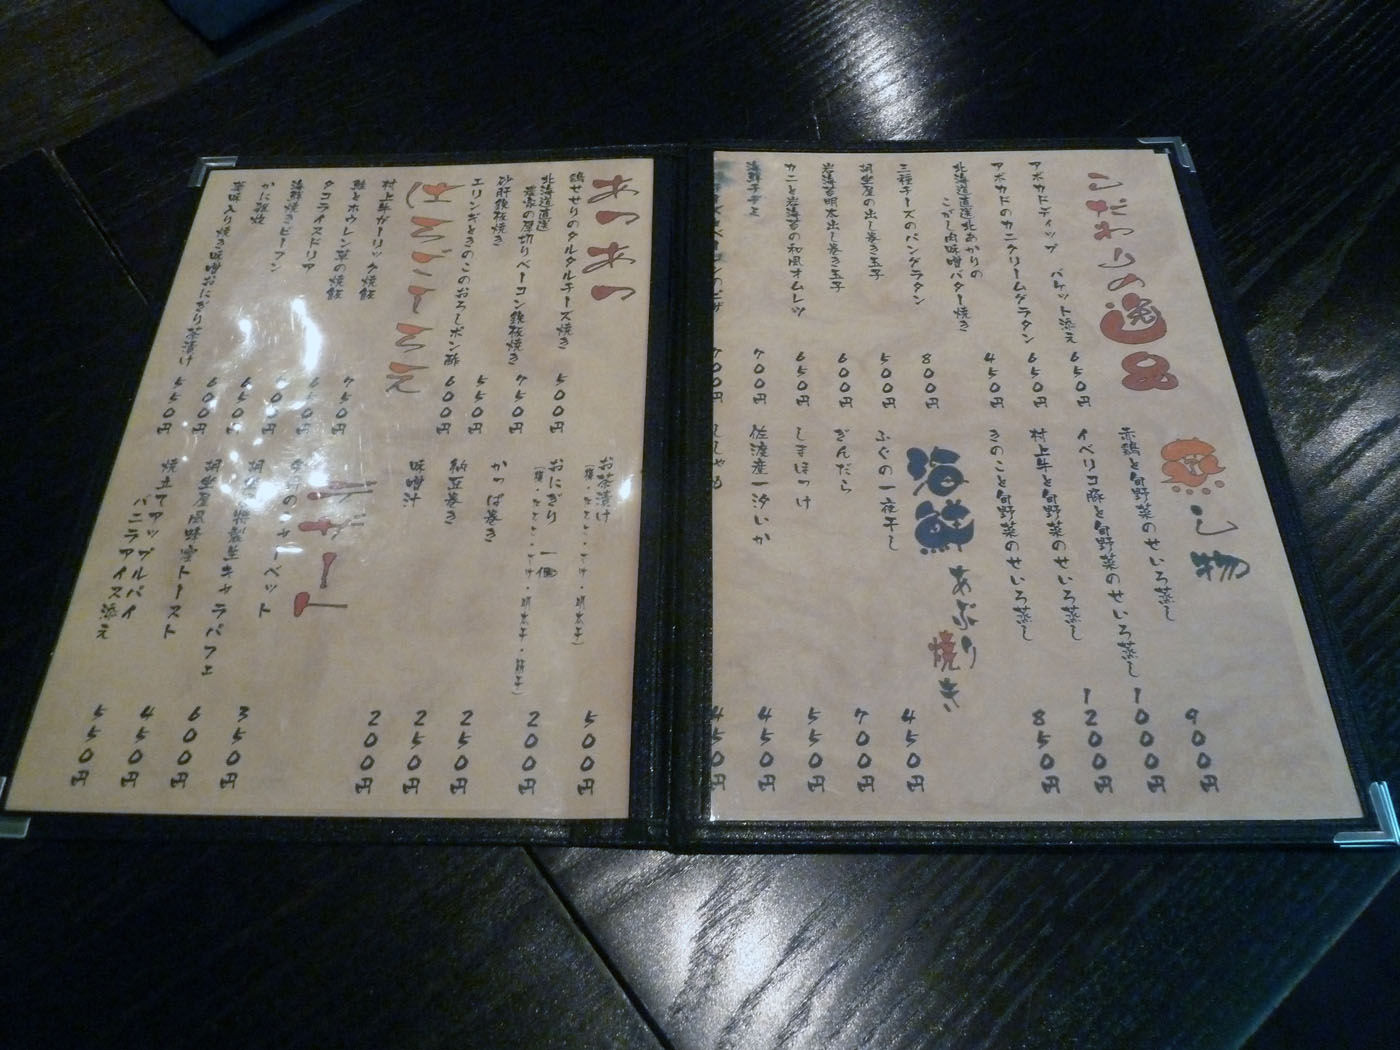 こだわりの逸品
アボカドディップ　バケット添え
650円
アボカドのカニクリームグラタン
650円
北海道直送北あかりの
こがし肉味噌バター焼き
450円
三種チーズのパングラタン
800円
胡坐屋の出し巻き玉子
500円
岩海苔明太出し巻き玉子
600円
カニと岩海苔の和風オムレツ
650円
海鮮チヂミ
700円
700円
蒸し物
赤鶏と旬野菜のせいろ蒸し
900円
イベリコ豚と旬野菜のせいろ蒸し
1000円
村上牛と旬野菜のせいろ蒸し
1200円
きのこと旬野菜のせいろ蒸し
850円
海鮮あぶり焼き
ふぐの一夜干し
450円
ぎんだら
700円
しまほっけ
550円
佐渡産一汐いか
450円
ししゃも
450円
あつあつ
鶏せせりのタルタルチーズ焼き
500円
北海道直送
農家の厚切りベーコン鉄板焼き
750円
砂肝鉄板焼き
550円
エリンギときのこのおろしポン酢
600円
村上牛ガーリック焼飯
750円
鮭とホウレン草の焼飯
650円
タコライスドリア
海鮮焼きビーフン
650円
かに雑炊
600円
葉入り焼き味噌おにぎり茶漬け
550円
お茶漬け
500円
おにぎり　一個
200円
かっぱ巻き
250円
納豆巻き
250円
味噌汁
200円
デザート
シャーベット
350円
胡坐屋特製生キャラパフェ
600円
胡坐屋風味噌トースト
450円
焼き立てアップルパイ
バニラアイス添え
550円